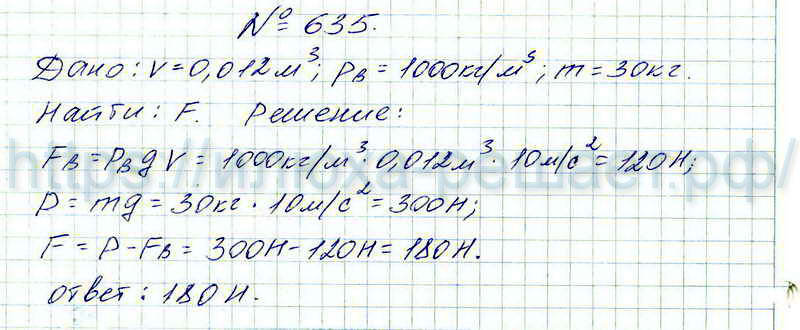 № 635.
Дано: V = 0,012 м³; ρв = 1000 кг/м³; m = 30 кг.
Найти: F. Решение:
Fв = ρв g V = 1000 кг/м³ · 0,012 м³ · 10 м/с² = 120 Н;
P = mg = 30 кг · 10 м/с² = 300 Н;
F = P - Fв = 300 Н - 120 Н = 180 Н.
Ответ: 180 Н.